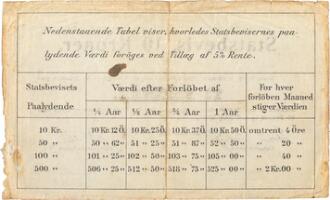 Nedenstaaende Tabel viser, hvorledes Statsbevisernes paa-
lydende Værdi forøges ved Tillæg af 5% Rente.
Statsbevisets Paalydende Værdi efter Forløbet af For hver forløben Maaned stiger Værdien
¼ Aar ½ Aar ¾ Aar 1 Aar
10 Kr. 10 Kr. 12 Ö. 10 Kr. 25 Ö. 10 Kr. 37 Ö. 10 Kr. 50 Ö. omtrent 4 Öre
50 " 50 " 62 " 51 " 25 " 51 " 87 " 52 " 50 " " 20 "
100 " 101 " 25 " 102 " 50 " 103 " 75 " 105 " 00 " " 40 "
500 " 506 " 25 " 512 " 50 " 518 " 75 " 525 " 00 " " 2 Kr. 00 "